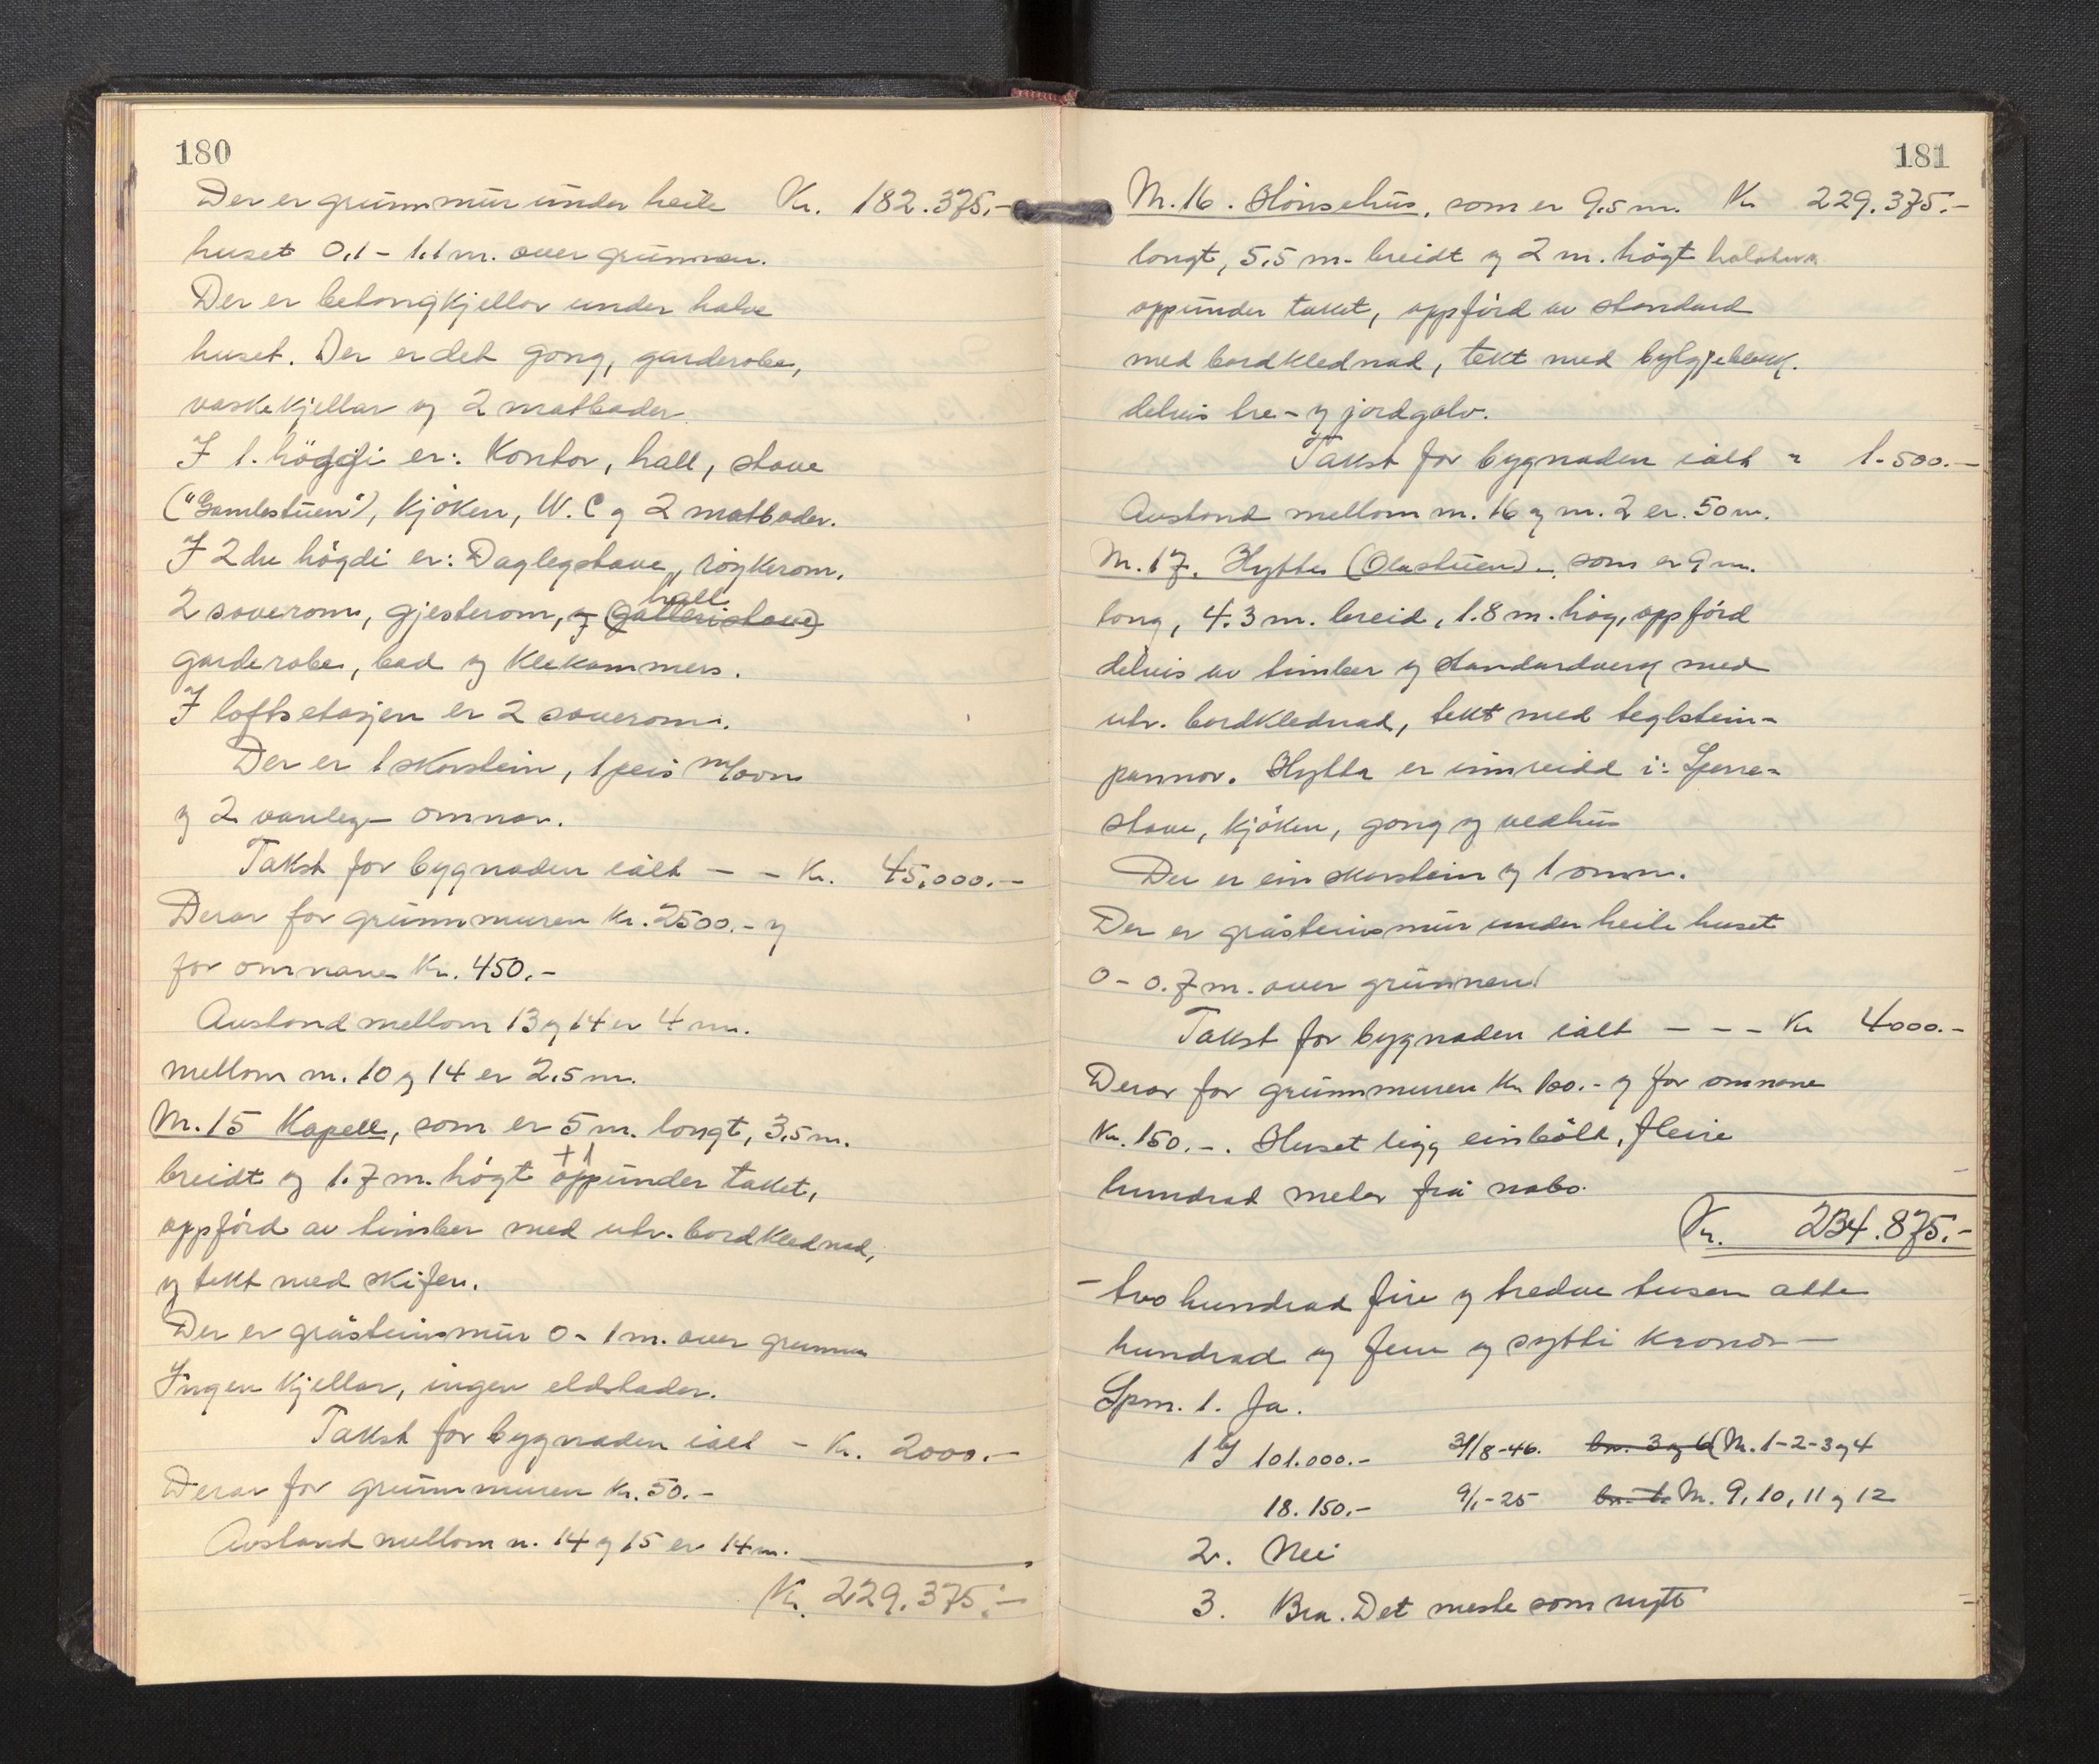 180
Der er grunnmur under heile Kr. 182.375.-
huset 0,1 - 1.1 m. over grunnen.
Der er betongkjellar under halve
huset. Der er det gong, garderobe,
vaskekjellar og 2 matboder
I 1. høgdi er: Kontor, hall, stove
("Gamlestuen"), kjøken, W.C og 2 matboder.
I 2dre høgdi er: Daglegstove, røykerom,
2 soverom, gjesterom, og (galleristove) hall
garderobe, bad og klekammers.
I loftsetasjen er 2 soverom.
Der er 1 skorstein, 1 peis m/omn
og 2 vanlege omnar.
Takst for bygnaden ialt - - Kr. 45.000.-
Derav for grunnmuren Kr. 2500.- og
for omnane Kr. 450.-
Avstand mellom 13 og 14 er 4 m.
mellom m. 10 og 14 er 2.5 m.
M. 15 Kapell, som er 5 m. longt, 3,5 m.
breidt og 1.7 m. høgt oppunder taket,
oppførd av timber med utv. bordklednad,
og tekt med skifer.
Der er gråsteinsmur 0 - 1 m. over grunnen
Ingen kjellar, ingen eldstader.
Takst for bygnaden ialt - Kr. 2000.-
Derav for grunnmuren Kr. 50.-
Avstand mellom n. 14 og 15 er 14 m.
Kr. 229.375.-
181
M. 16. Hönsehus, som er 9.5 m. Kr 229.375.-
longt, 5.5 m. breidt og 2 m. högt
oppunder taket, oppförd av standard
med bordklednad, tekt med bylgjeblekk.
delvis tre- og jordgolv.
Takst for bygnaden ialt " 1.500.-
Avstand mellom m. 16 og m. 2 er 50 m.
M. 17. Hytte (Olastuen) -, som er 9 m.
long, 4.3 m. breid, 1.8 m. hög, oppförd
delvis av timber og standardverk med
utv. bordklednad, tekt med teglstein-
pannor. Hytta er innreidd i: Sperre-
stove, kjöken, gong og vedhus
Der er ein skorstein og 1 omn.
Der er gråsteinsmur under heile huset
0 - 0.7 m. over grunnen.
Takst for bygnaden ialt - - - Kr 4000.-
Derav for grunnmuren Kr 100.- og for omnane
Kr. 150.-. Huset ligg einbölt, fleire
hundrad meter frå nabo.
Kr. 234.875.-
- tvo hundrad fire og tredve tusen atte
hundrad og fem og sytti kronor -
Spm. 1. Ja.
1 bf 101.000.- 31/8-46. bn. 3 og 6 (M. 1-2-3 og 4
18.150.- 9/1-25 bn. 1. M. 9, 10, 11 og 12
2. Nei
3. Bra. Det meste som nytt